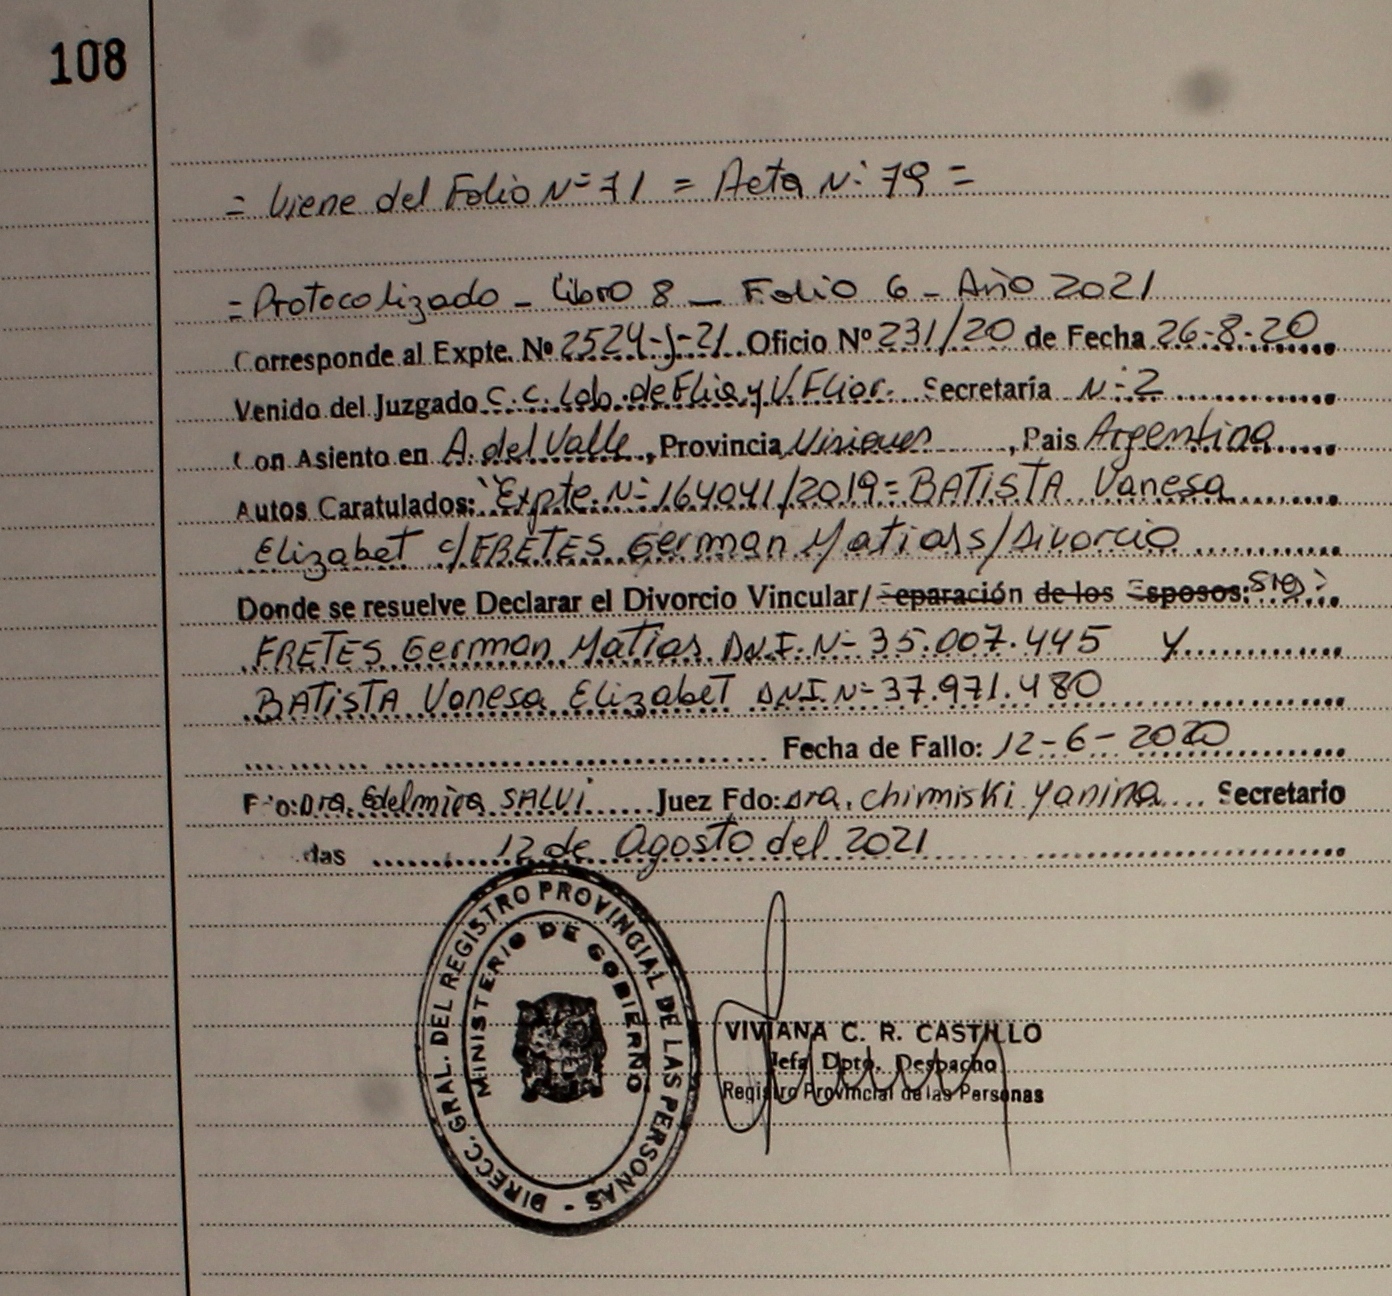 108
= Viene del Folio Nº 71 = Acta Nº 79 =
= Protocolizado - Libro 8 - Folio 6 - Año 2021
Corresponde al Expte. Nº 2524-J-21 Oficio Nº 231/20 de Fecha 26-8-20
Venido del Juzgado C.C. Lab. de Flia y V. Flior. Secretaría Nº 2
Con Asiento en A. del Valle, Provincia Misiones, Pais Argentina
Autos Caratulados: "Expte. Nº 164041/2019 = BATISTA Vanesa
Elizabet c/ FRETES German Matias s/Divorcio
Donde se resuelve Declarar el Divorcio Vincular/Separación de los Esposos: Sres:
FRETES German Matias D.N.I. Nº 35.007.445 y
BATISTA Vanesa Elizabet DNI Nº 37.971.480
Fecha de Fallo: 12-6-2020
Fdo: Dra. Edelmira SALVI Juez Fdo: Dra. Chirniski Yanina Secretario
das 12 de Agosto del 2021
DIRECC. GRAL. DEL REGISTRO PROVINCIAL DE LAS PERSONAS -
MINISTERIO DE GOBIERNO
VIVIANA C. R. CASTILLO
Jefa Dpto. Despacho
Registro Provincial de las Personas